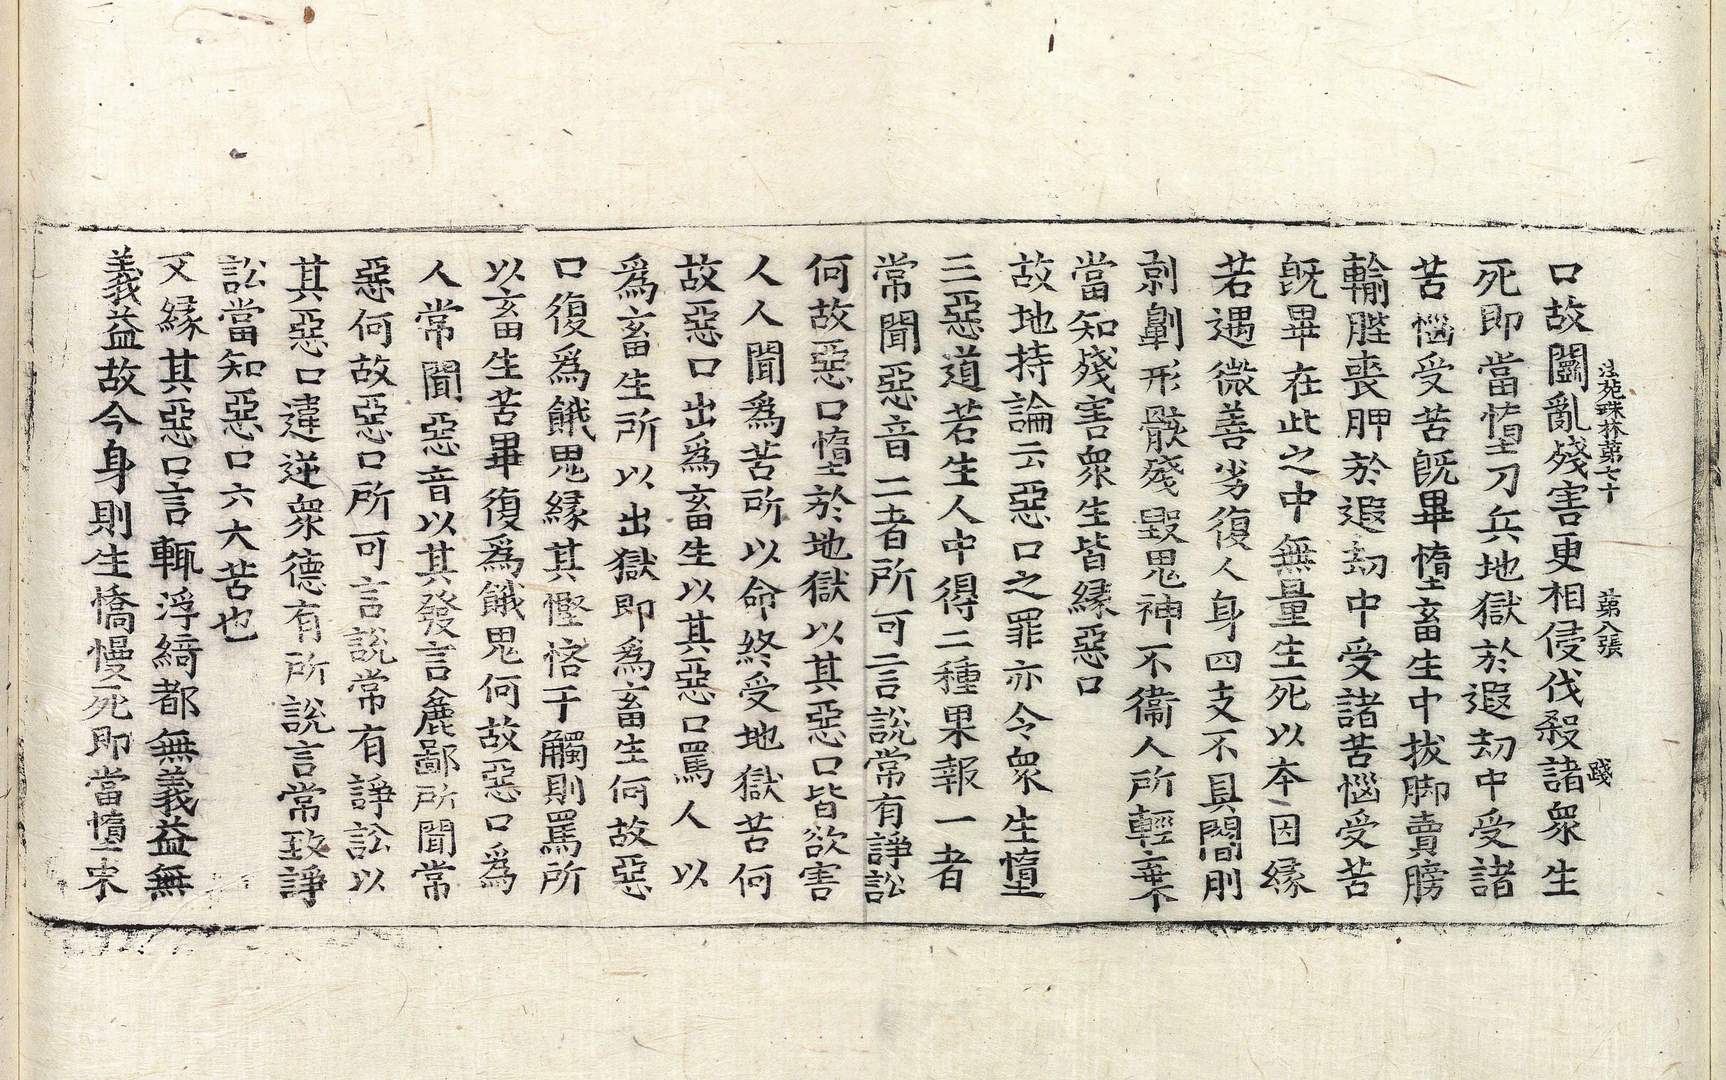 法苑珠林第七十　第八張　踐
口故鬪亂殘害更相侵伐殺諸衆生
死即當墮刀兵地獄於遐劫中受諸
苦惱受苦旣畢墮畜生中拔脚賣膀
輸髀喪胛於遐劫中受諸苦惱受苦
旣畢在此之中無量生死以本因縁
若遇微善劣復人身四支不具閽刖
剠劓形骸殘毀鬼神不衞人所輕棄
當知殘害衆生皆縁惡口
故地持論云惡口之罪亦令衆生墮
三惡道若生人中得二種果報一者
常聞惡音二者所可言說常有諍訟
何故惡口墮於地獄以其惡口皆欲害
人人聞爲苦所以命終受地獄苦何
故惡口出爲畜生以其惡口罵人以
爲畜生所以出獄即爲畜生何故惡
口復爲餓鬼縁其慳悋干觸則罵所
以畜生苦畢復爲餓鬼何故惡口爲
人常聞惡音以其發言麁鄙所聞常
惡何故惡口所可言說常有諍訟以
其惡口違逆衆德有所說言常致諍
訟當知惡口六大苦也
又縁其惡口言輒浮綺都無義益無
義益故今身則生憍慢死即當墮束